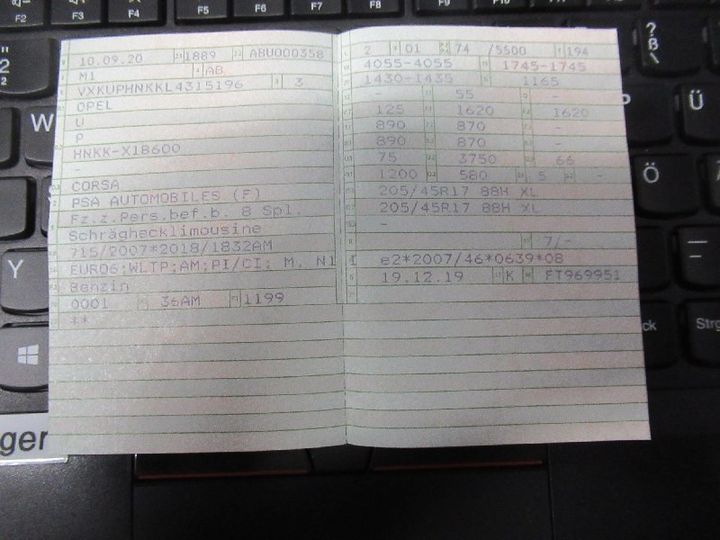 10.09.20 1889 ABU000358
M1 AB
VXKUPHNKKL4315196 3
OPEL
U
P
HNKK-X18600
-
CORSA
PSA AUTOMOBILES (F)
Fz.z.Pers.bef.b. 8 Spl.
Schräghecklimousine
715/2007*2018/1832AM
EURO6;WLTP;AM;PI/CI; M, N1 I
Benzin
0001 36AM 1199
**
2 01 74 /5500 194
4055-4055 1745-1745
1430-1435 1165
- 55 -
125 1620 1620
890 870 -
890 870 -
75 3750 66
1200 580 5 -
205/45R17 88H XL
205/45R17 88H XL
-
7/-
e2*2007/46*0639*08
19.12.19 K FT969951
F2 F3 F4 F5 F6 F7 F8 F9
W
Y
ger
?
ß
\
Ü
Ö
Strg